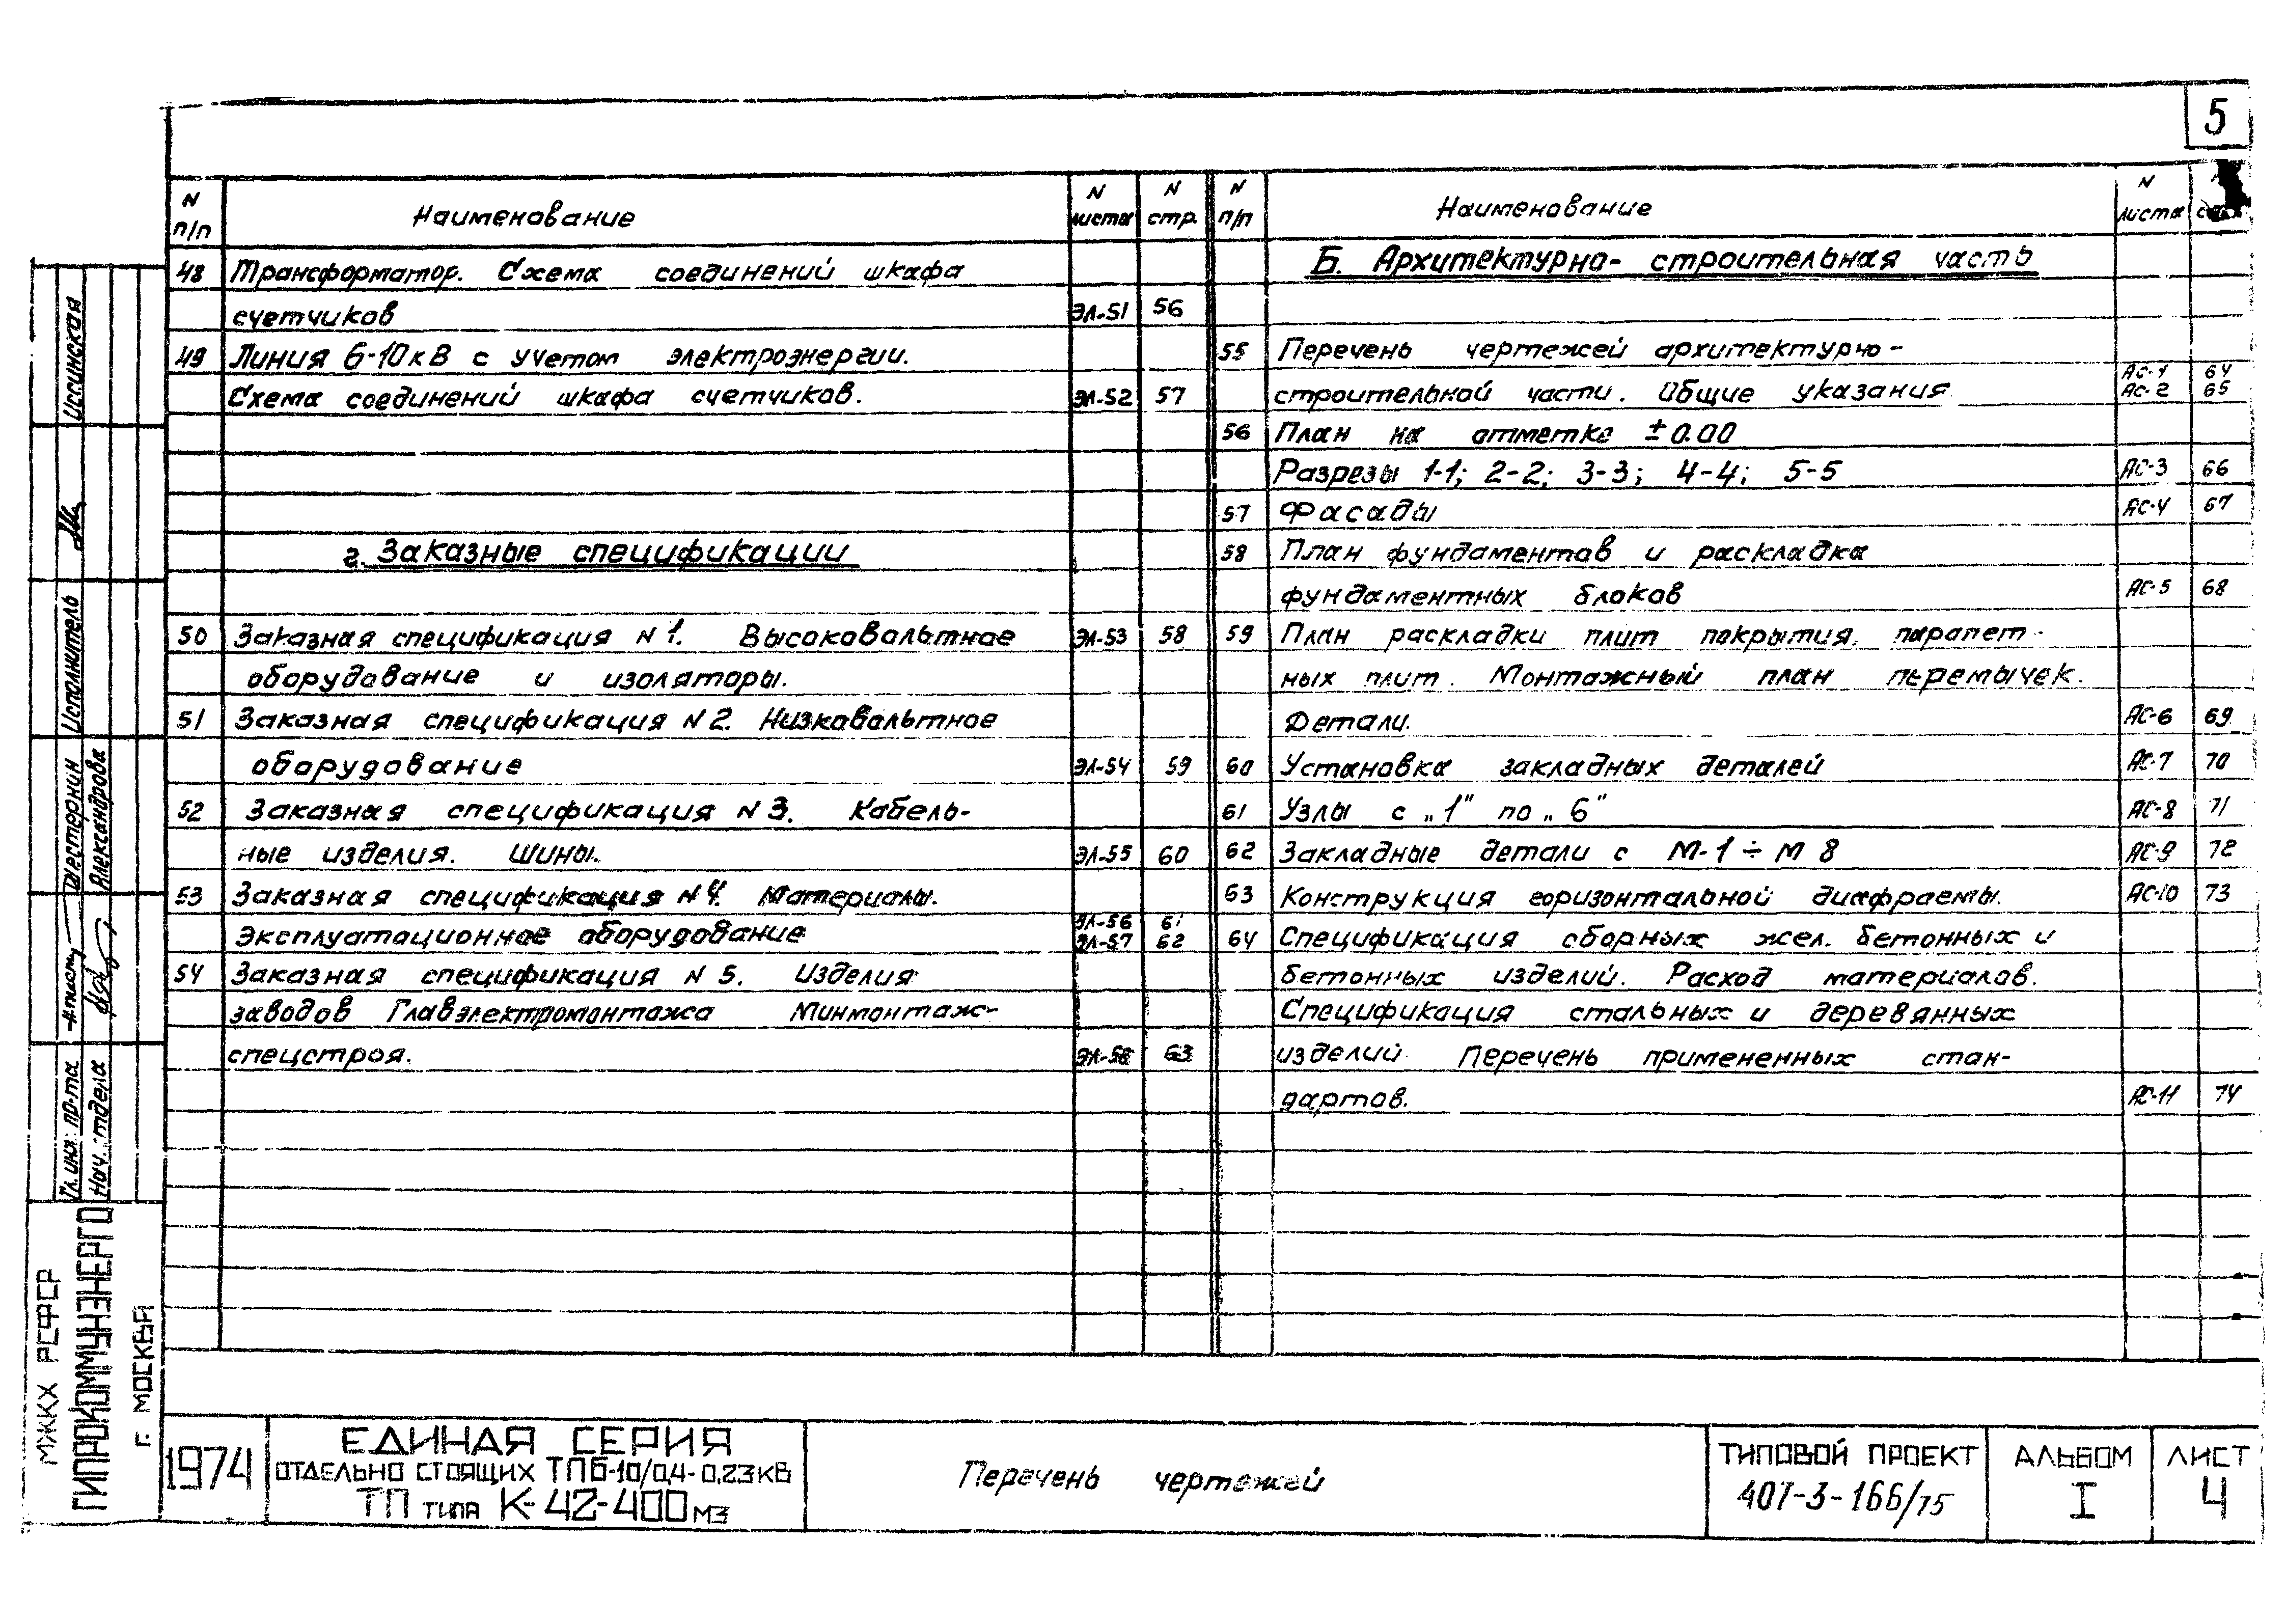 5
N п/п Наименование N листа N стр.
48 Трансформатор. Схема соединений шкафа
счетчиков ЭЛ-51 56
49 Линия 6-10кВ с учетом электроэнергии.
Схема соединений шкафа счетчиков. ЭЛ-52 57
г. Заказные спецификации
50 Заказная спецификация N 1. Высоковольтное ЭЛ-53 58
оборудование и изоляторы.
51 Заказная спецификация N 2. Низковольтное
оборудование ЭЛ-54 59
52 Заказная спецификация N 3. Кабель-
ные изделия. Шины. ЭЛ-55 60
53 Заказная спецификация N 4. Материалы.
Эксплуатационное оборудование ЭЛ-56 61
ЭЛ-57 62
54 Заказная спецификация N 5. Изделия
заводов Главэлектромонтажа Минмонтаж-
спецстроя. ЭЛ-58 63
N п/п Наименование N листа
Б. Архитектурно- строительная часть
55 Перечень чертежей архитектурно-
строительной части. Общие указания АС-1 64
АС-2 65
56 План на отметке ±0.00
Разрезы 1-1; 2-2; 3-3; 4-4; 5-5 АС-3 66
57 Фасады АС-4 67
58 План фундаментов и раскладка
фундаментных блоков АС-5 68
59 План раскладки плит покрытия, парапет-
ных плит. Монтажный план перемычек.
Детали. АС-6 69
60 Установка закладных деталей АС-7 70
61 Узлы с „1" по „6" АС-8 71
62 Закладные детали с М-1 ÷ М 8 АС-9 72
63 Конструкция горизонтальной диафрагмы. АС-10 73
64 Спецификация сборных жел. бетонных и
бетонных изделий. Расход материалов.
Спецификация стальных и деревянных
изделий. Перечень примененных стан-
дартов. АС-11 74
Гл. инж. пр-та Шестернин Исполнитель Иссинская
Нач. отдела Александрова
МЖКХ РСФСР
ГИПРОКОММУНЭНЕРГО
г. МОСКВА
1974
ЕДИНАЯ СЕРИЯ
ОТДЕЛЬНО СТОЯЩИХ ТП 6-10/0,4-0,23КВ
ТП типа К-42-400 м3
Перечень чертежей
ТИПОВОЙ ПРОЕКТ
407-3-166/75
АЛЬБОМ
I
ЛИСТ
4